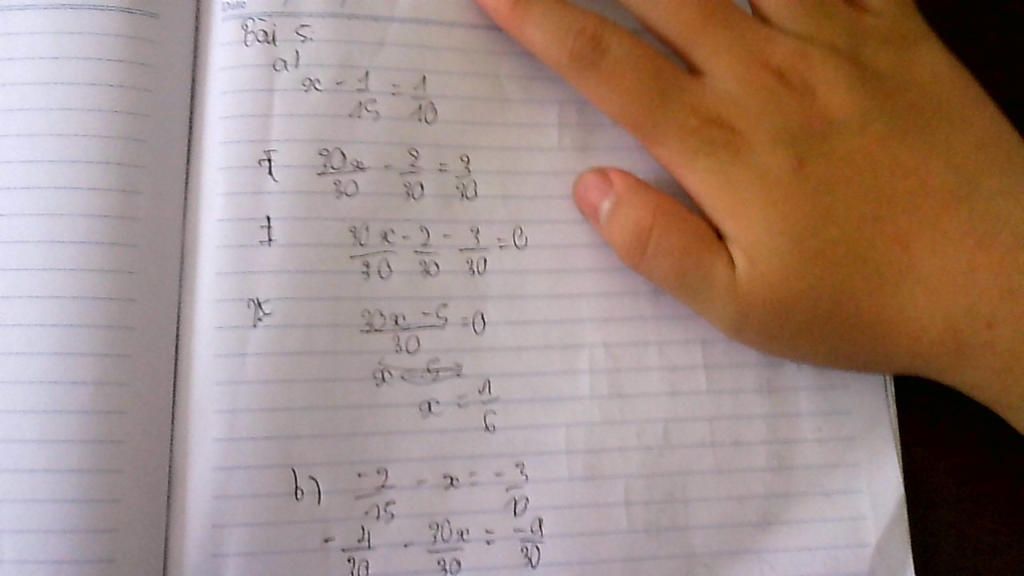 Bài 5
a)
x - 1/15 = 1/10
30x/30 - 2/30 = 3/30
30x/30 - 2/30 - 3/30 = 0
30x - 5/30 = 0
x = 1/6
b) -2/15 - x = -3/10
-4/30 - 30x/30 = -9/30